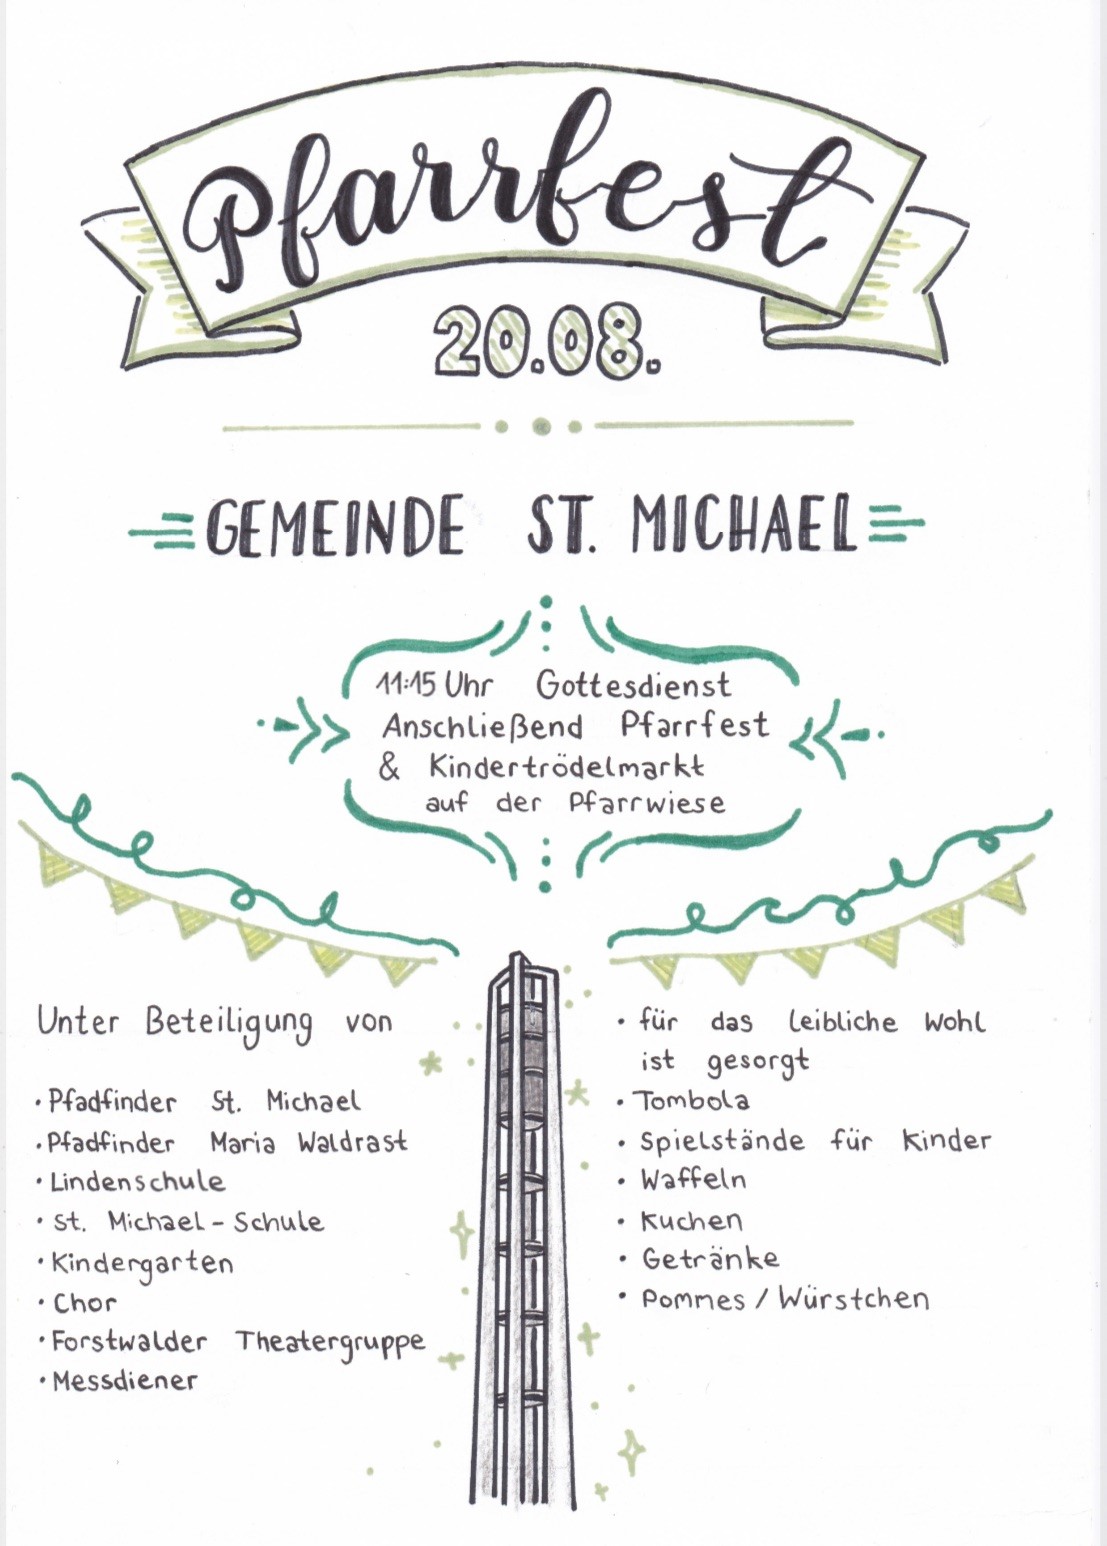 Pfarrfest
20.08.
GEMEINDE ST. MICHAEL
11:15 Uhr Gottesdienst
Anschließend Pfarrfest
& Kindertrödelmarkt
auf der Pfarrwiese
Unter Beteiligung von
• Pfadfinder St. Michael
• Pfadfinder Maria Waldrast
• Lindenschule
• St. Michael-Schule
• Kindergarten
• Chor
• Forstwalder Theatergruppe
• Messdiener
• für das leibliche Wohl
ist gesorgt
• Tombola
• Spielstände für Kinder
• Waffeln
• Kuchen
• Getränke
• Pommes / Würstchen